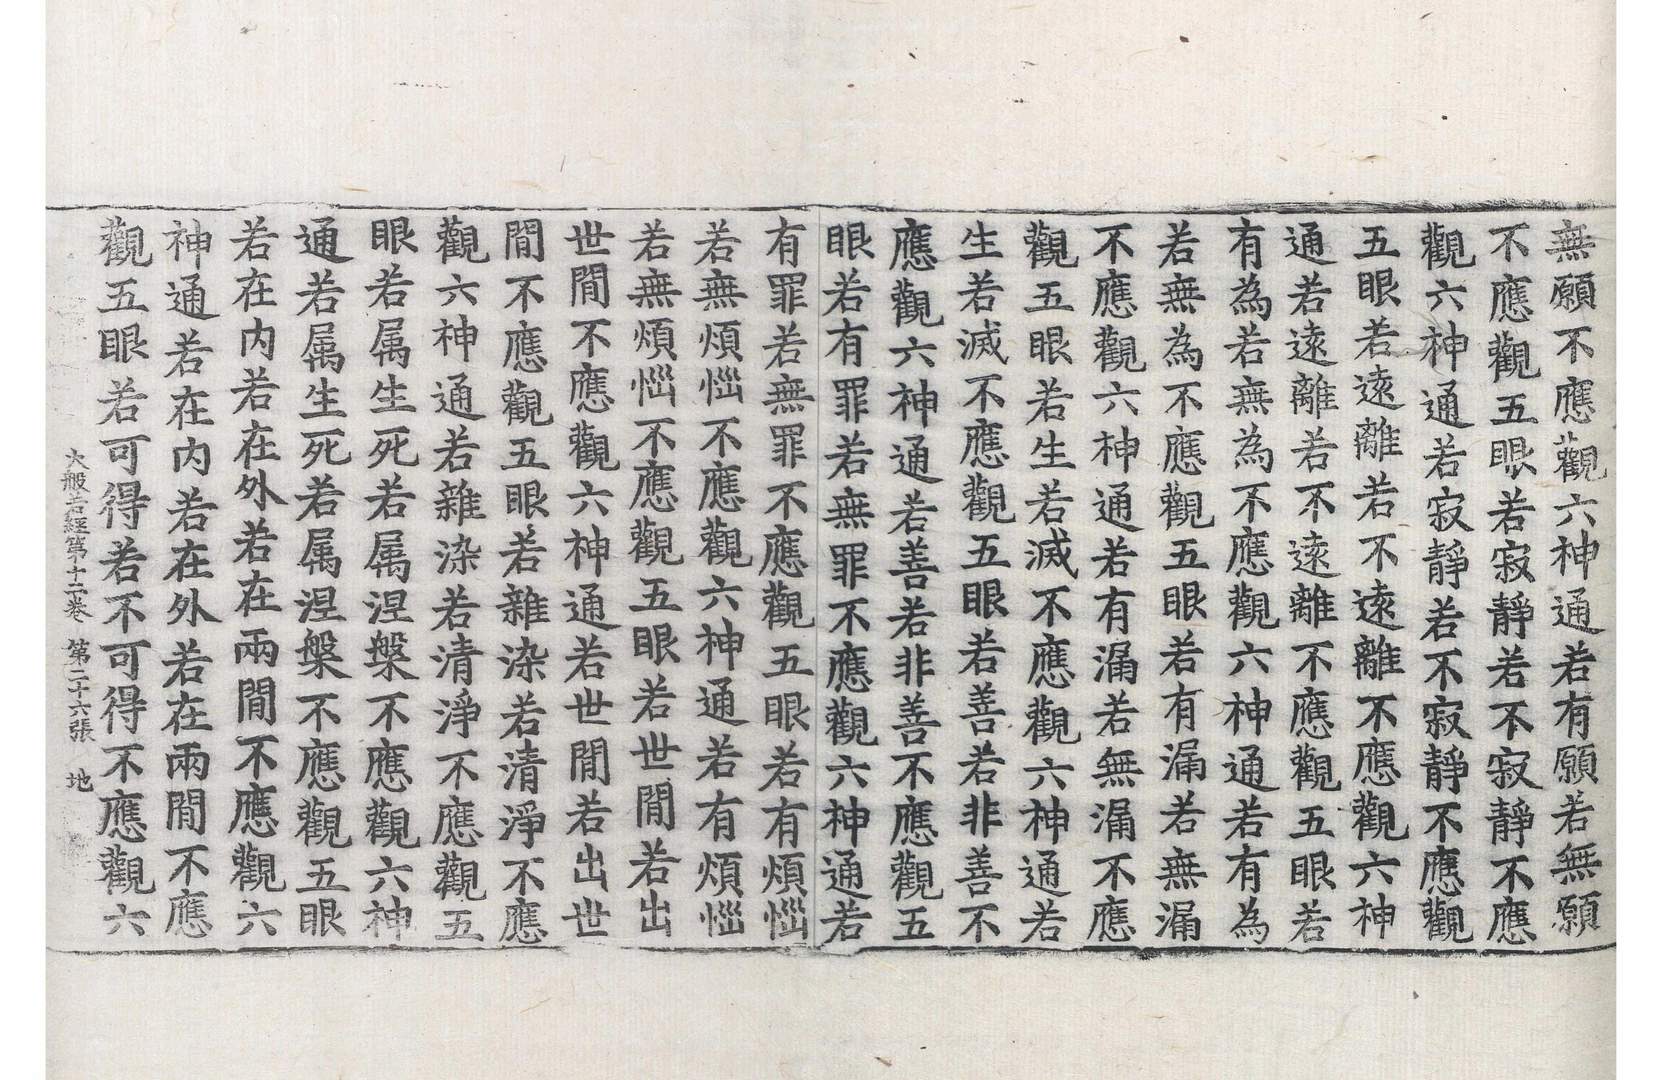 無願不應觀六神通若有願若無願
不應觀五眼若寂靜若不寂靜不應
觀六神通若寂靜若不寂靜不應觀
五眼若遠離若不遠離不應觀六神
通若遠離若不遠離不應觀五眼若
有為若無為不應觀六神通若有為
若無為不應觀五眼若有漏若無漏
不應觀六神通若有漏若無漏不應
觀五眼若生若滅不應觀六神通若
生若滅不應觀五眼若善若非善不
應觀六神通若善若非善不應觀五
眼若有罪若無罪不應觀六神通若
有罪若無罪不應觀五眼若有煩惱
若無煩惱不應觀六神通若有煩惱
若無煩惱不應觀五眼若世閒若出
世閒不應觀六神通若世閒若出世
閒不應觀五眼若雜染若清淨不應
觀六神通若雜染若清淨不應觀五
眼若属生死若属涅槃不應觀六神
通若属生死若属涅槃不應觀五眼
若在内若在外若在兩閒不應觀六
神通若在内若在外若在兩閒不應
觀五眼若可得若不可得不應觀六
大般若經第十二卷 第二十六張 地